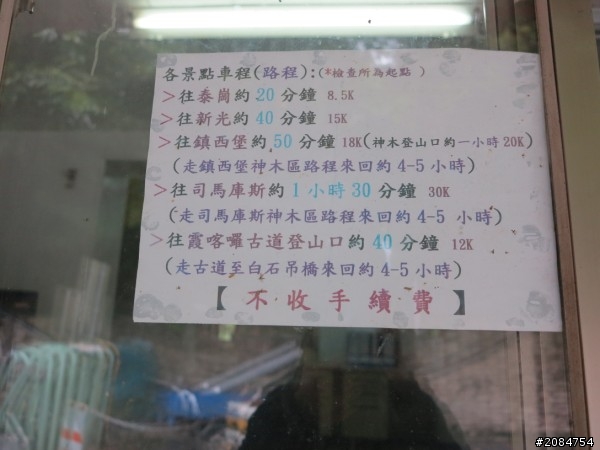 各景點車程(路程):(*檢查所為起點 )
>往泰崗約20分鐘 8.5K
>往新光約40分鐘 15K
>往鎮西堡約50分鐘 18K(神木登山口約一小時20K)
(走鎮西堡神木區路程來回約 4-5 小時)
>往司馬庫斯約1小時30分鐘 30K
(走司馬庫斯神木區路程來回約 4-5 小時)
>往霞喀囉古道登山口約40分鐘 12K
(走古道至白石吊橋來回約 4-5 小時)
【不收手續費】
#2084754